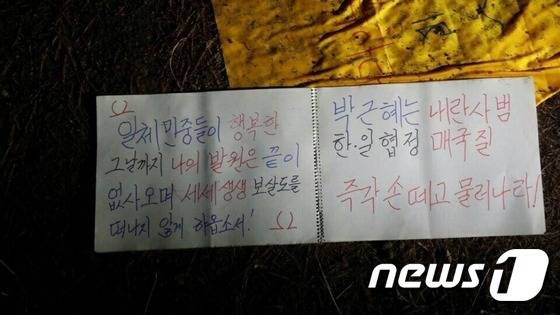 Ω
일체 만중들이 행복한
그날까지 나의 발원은 끝이
없사오며 세세생생 보살도를
떠나지 않게 하옵소서! Ω
박근혜는 내란사범
한·일협정 매국질
즉각 손 떼고 물러나라!
news1